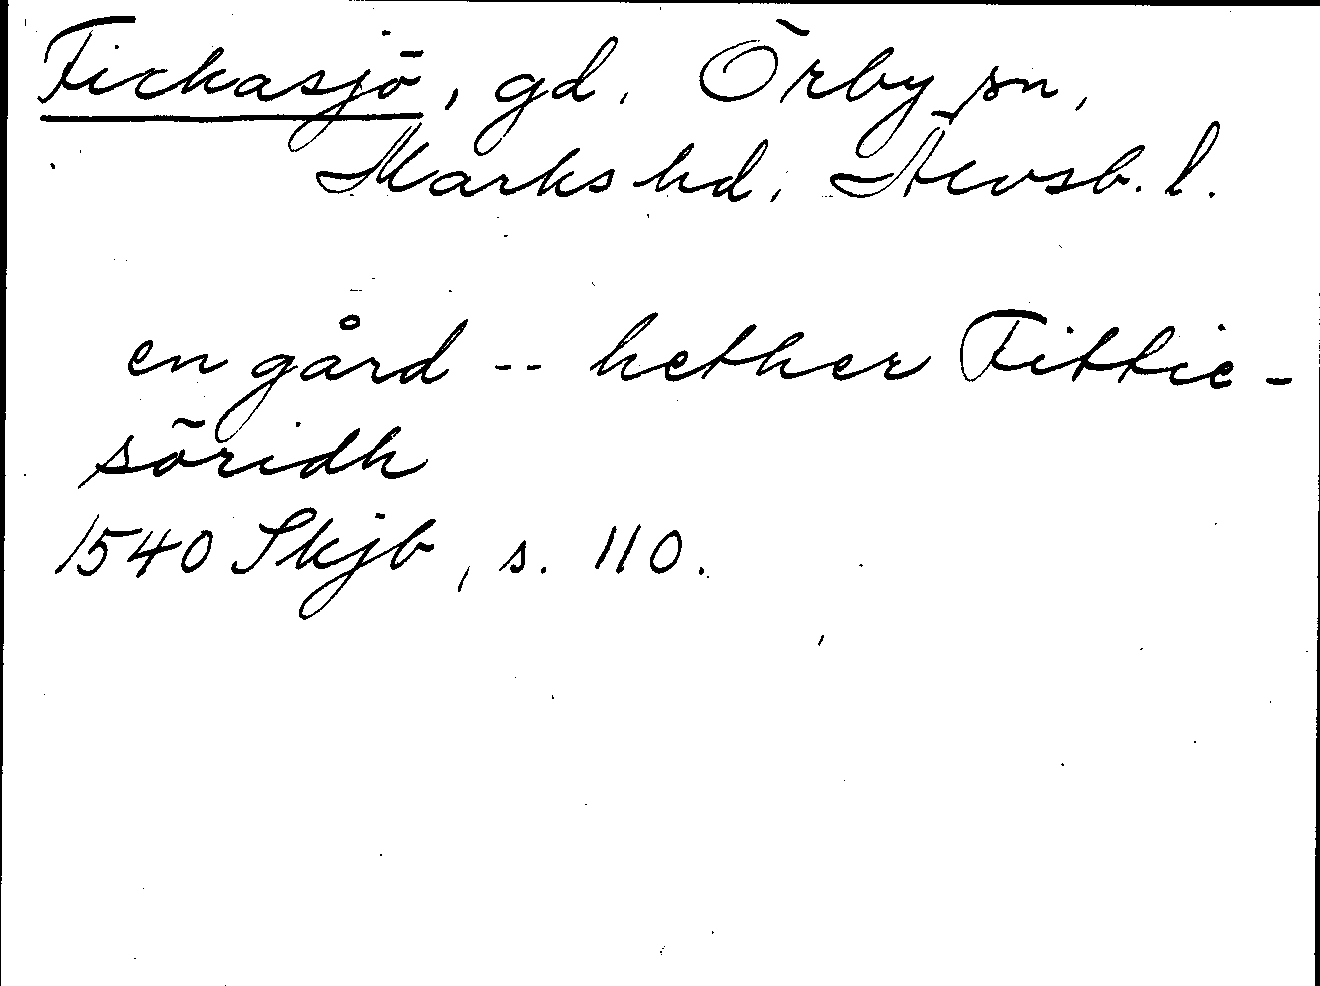 Fickasjö, gd. Örby sn,
Marks hd, Älvsb. l.
en gård -- hether Fittie-
söridh
1540 Skjb, s. 110.